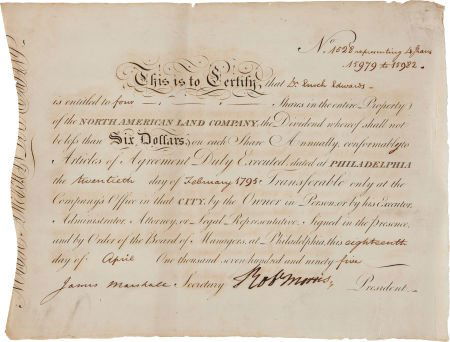 No 1528 representing 4 Shares
15979 to 15982
This is to Certify, that Dr. Enoch Edwards
is entitled to four Shares in the entire Property
of the NORTH AMERICAN LAND COMPANY, the Dividend whereof shall not
be less than Six Dollars on each Share Annually, conformably to
Articles of Agreement Duly Executed, dated at PHILADELPHIA
the twentieth day of February 1795 Transferable only at the
Company's Office in that CITY, by the Owner in Person, or by his Executor,
Administrator, Attorney, or Legal Representative. Signed in the presence,
and by Order of the Board of Managers, at Philadelphia, this eighteenth
day of April One thousand seven hundred and ninety five
James Marshall Secretary Rob Morris President.